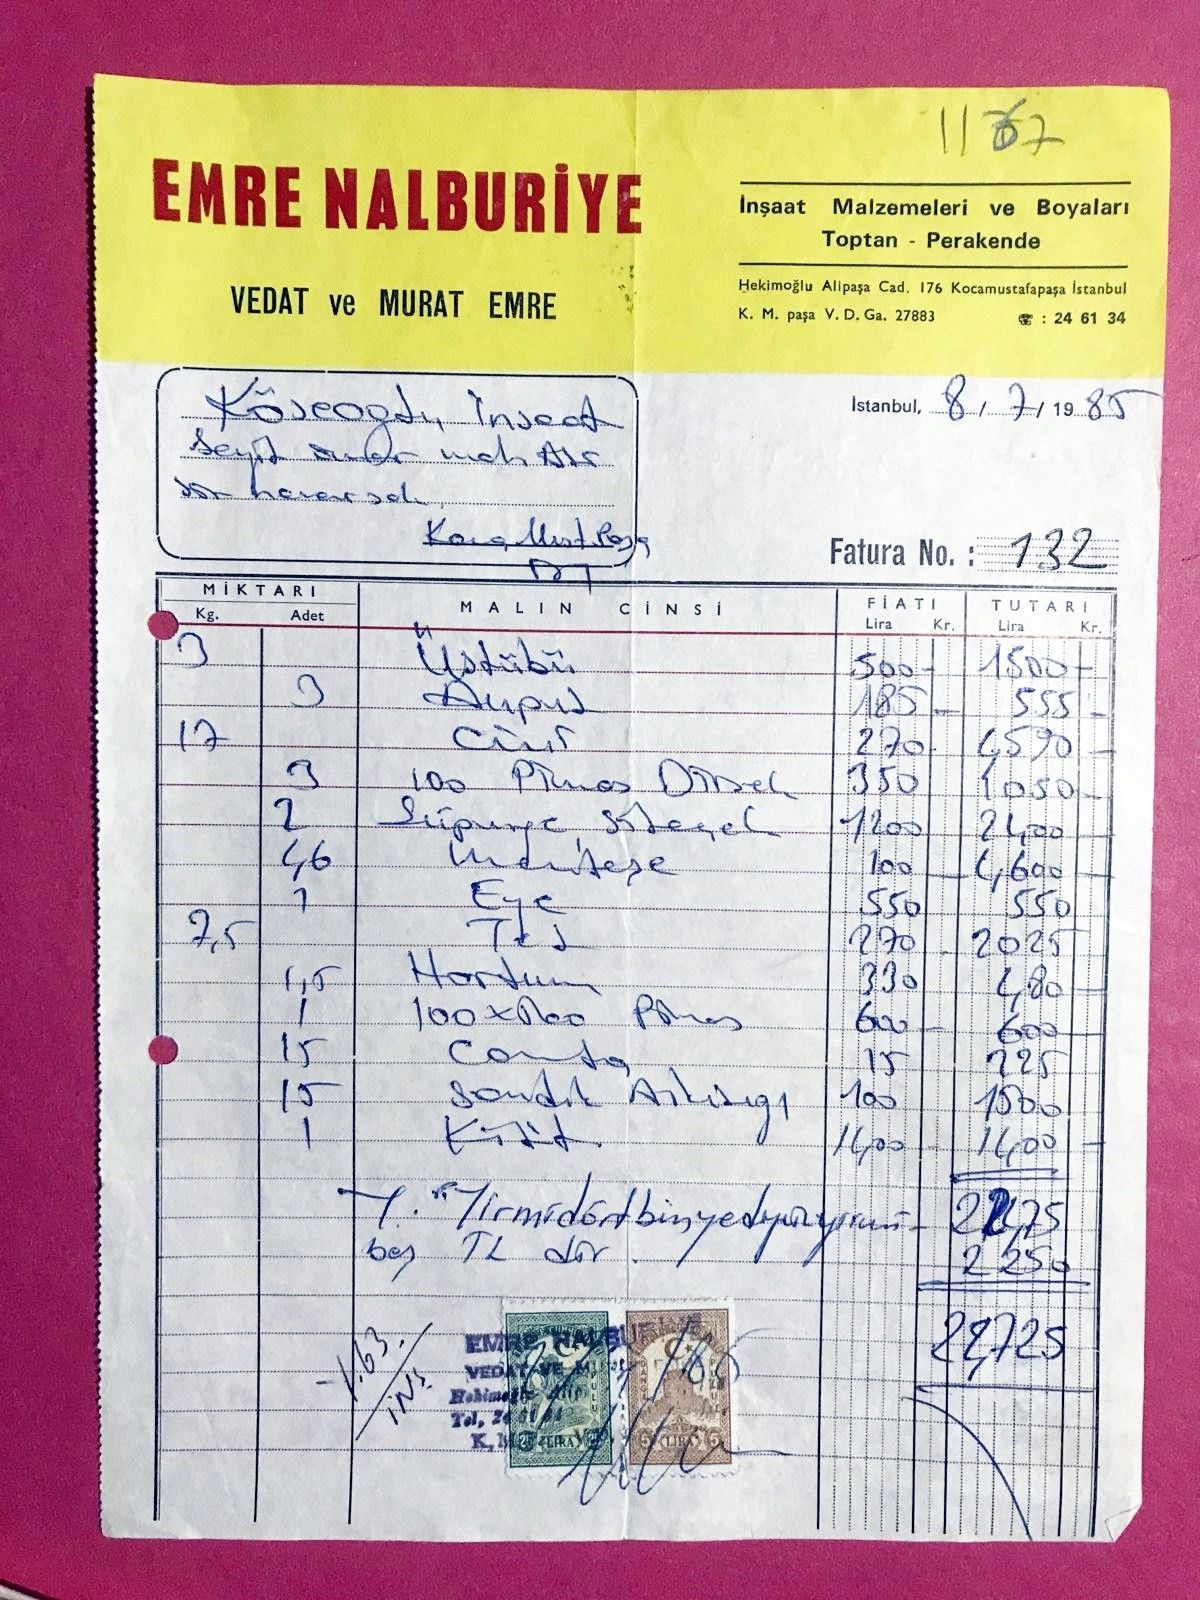 1167
EMRE NALBURİYE
VEDAT ve MURAT EMRE
İnşaat Malzemeleri ve Boyaları
Toptan - Perakende
Hekimoğlu Alipaşa Cad. 176 Kocamustafapaşa İstanbul
K. M. paşa V. D. Ga. 27883 ☎ : 24 61 34
Köseoğlu İnşaat
Seyit ömer mah.
İstanbul, 8 / 7 / 19 85
Fatura No. : 132
MİKTARI MALIN CİNSİ FİATI TUTARI
Kg. Adet Lira Kr. Lira Kr.
3 Üstübü 500- 1500-
3 185- 555-
17 270- 4590-
3 100 Pimaş Dirsek 350 1050-
2 Süpürge 1200 2400-
46 Menteşe 100- 4600-
1 Eğe 550 550
7,5 Tel 270- 2025-
1,5 Hortum 330 480-
1 Pimaş 600- 600-
15 Conta 15 225
15 100 1500
1 Kilit 1400- 1400-
Y. Yirmidörtbinyediyüzyirmi- 22475
beş TL dir. 2250
24,725
163.
inş.
EMRE NALBURİYE
VEDAT VE
Hekimoğlu Alip
Tel, 24 61 34
K, M
LİRA 5 LİRA 5